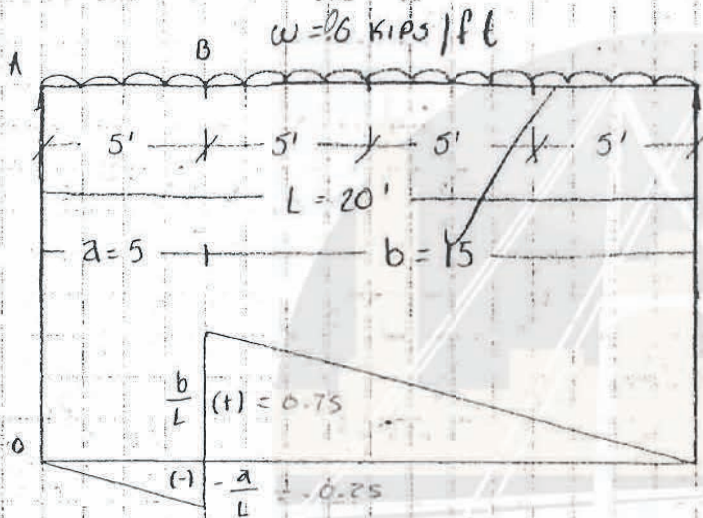 w = .6 KIPS / ft
A B
5' 5' 5' 5'
L = 20'
a = 5 b = 15
b/L (+) = 0.75
0
(-) - a/L = -0.25